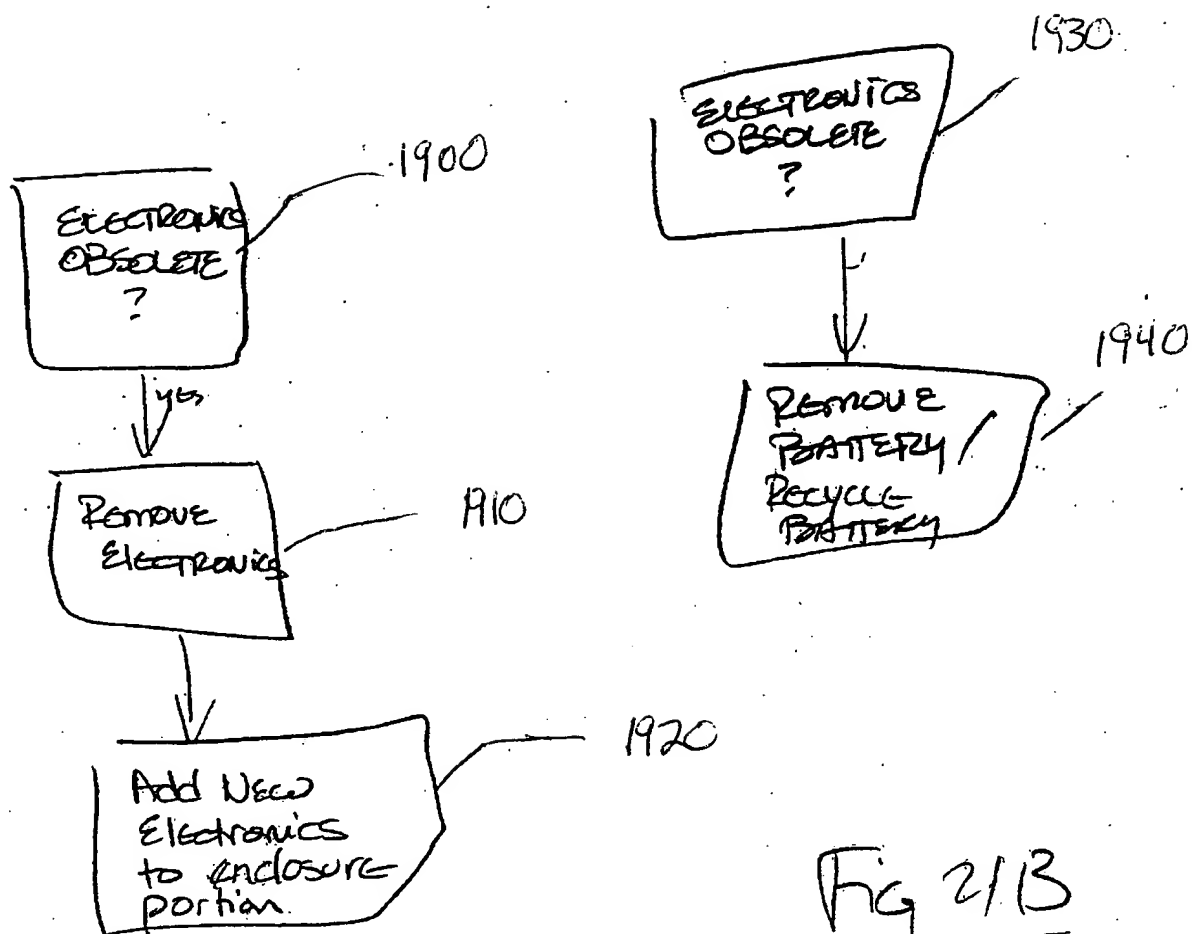 1900
ELECTRONICS
OBSOLETE
?
yes
REMOVE
ELECTRONICS
1910
Add New
Electronics
to enclosure
portion.
1920
1930
ELECTRONICS
OBSOLETE
?
REMOVE
BATTERY /
RECYCLE
BATTERY
1940
Fig 21B